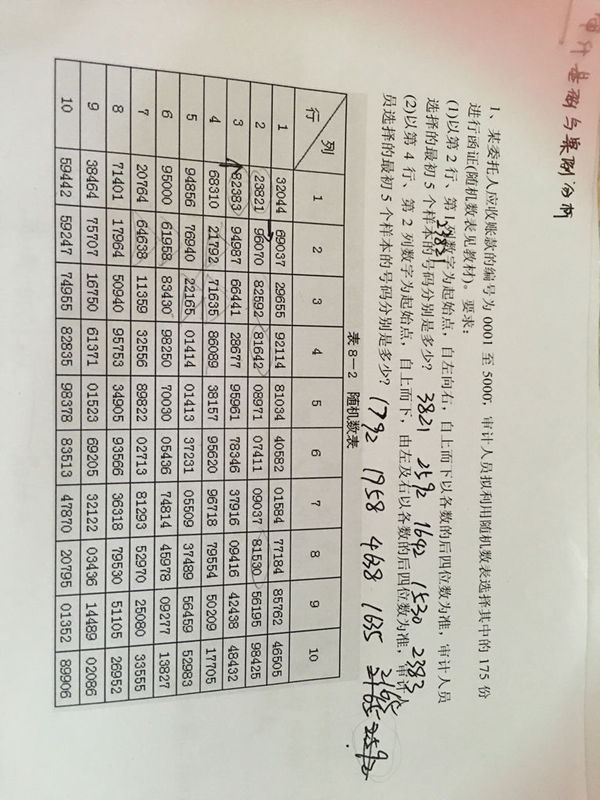 审计基础与案例分析
1、某委托人应收账款的编号为 0001 至 5000, 审计人员拟利用随机数表选择其中的 175 份
进行函证(随机数表见教材)。要求:
(1)以第 2 行、第 1 列数字为起始点，自左向右，自上而下以各数的后四位数为准，审计人员
23821
选择的最初 5 个样本的号码分别是多少? 3821 2592 1642 1530 2383
(2)以第 4 行、第 2 列数字为起始点，自上而下，由左及右以各数的后四位数为准，审计人
员选择的最初 5 个样本的号码分别是多少? 1792 1958 4638 1635 2165
表 8-2 随机数表
列 1 2 3 4 5 6 7 8 9 10
行
1 32044 69037 29655 92114 81034 40582 01584 77184 85762 46505
2 23821 96070 82592 81642 08971 07411 09037 81530 56195 98425
3 82383 94987 66441 28677 95961 78346 37916 09416 42438 48432
4 68310 21792 71635 86089 38157 95620 96718 79554 50209 17705
5 94856 76940 22165 01414 01413 37231 05509 37489 56459 52983
6 95000 61958 83430 98250 70030 05436 74814 45978 09277 13827
7 20764 64638 11359 32556 89822 02713 81293 52970 25080 33555
8 71401 17964 50940 95753 34905 93566 36318 79530 51105 26952
9 38464 75707 16750 61371 01523 69205 32122 03436 14489 02086
10 59442 59247 74955 82835 98378 83513 47870 20795 01352 89906